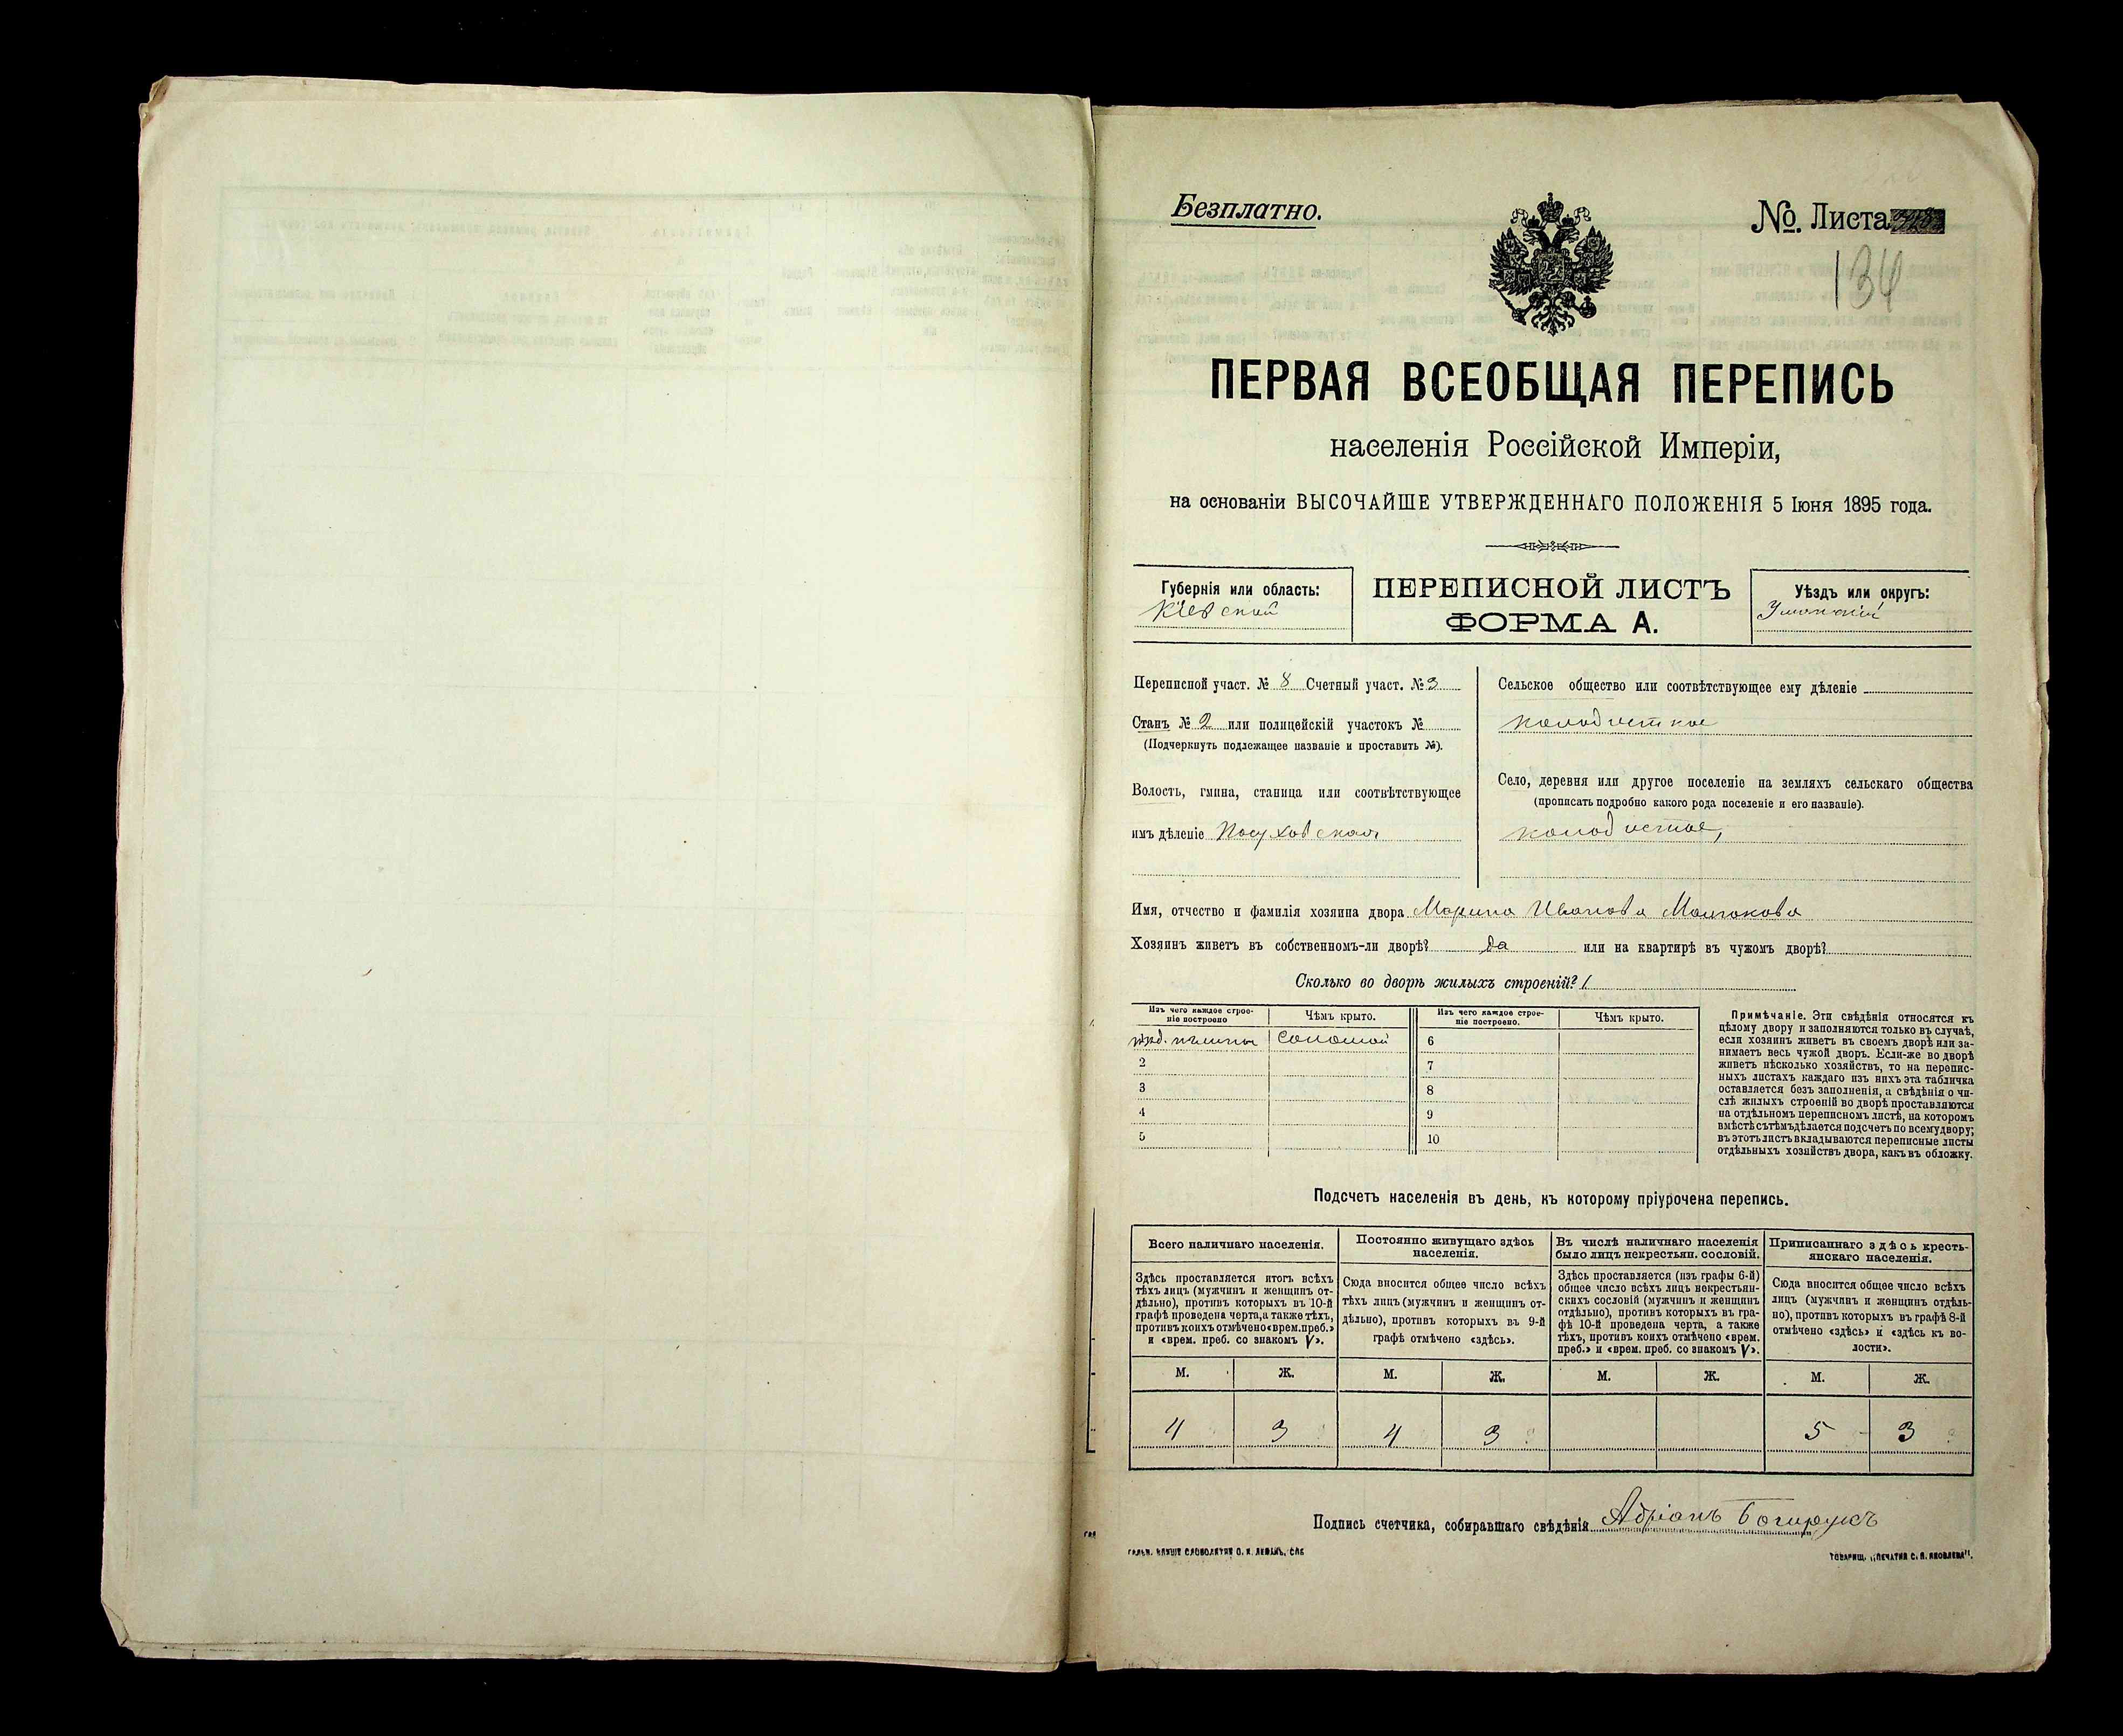 Безплатно.
№. Листа
134
ПЕРВАЯ ВСЕОБЩАЯ ПЕРЕПИСЬ
населенія Россійской Имперіи,
на основаніи ВЫСОЧАЙШЕ УТВЕРЖДЕННАГО ПОЛОЖЕНІЯ 5 Іюня 1895 года.
Губернія или область:
Кіевской
ПЕРЕПИСНОЙ ЛИСТЪ
ФОРМА А.
Уѣздъ или округъ:
Уманскій
Переписной участ. № 8 Счетный участ. № 3
Станъ № 2 или полицейскій участокъ №
(Подчеркнуть подлежащее названіе и проставить №).
Волость, гмина, станица или соотвѣтствующее
имъ дѣленіе Посуховская
Сельское общество или соотвѣтствующее ему дѣленіе
колодистое
Село, деревня или другое поселеніе на земляхъ сельскаго общества
(прописать подробно какого рода поселеніе и его названіе).
колодистое,
Имя, отчество и фамилія хозяина двора Марина Иванова
Хозяинъ живетъ въ собственномъ-ли дворѣ? да или на квартирѣ въ чужомъ дворѣ?
Сколько во дворѣ жилыхъ строеній? 1
Изъ чего каждое строе-
ніе построено
Чѣмъ крыто.
Изъ чего каждое строе-
ніе построено.
Чѣмъ крыто.
соломой
6
2
7
3
8
4
9
5
10
Примѣчаніе. Эти свѣдѣнія относятся къ
цѣлому двору и заполняются только въ случаѣ,
если хозяинъ живетъ въ своемъ дворѣ или за-
нимаетъ весь чужой дворъ. Если-же во дворѣ
живетъ нѣсколько хозяйствъ, то на перепис-
ныхъ листахъ каждаго изъ нихъ эта табличка
оставляется безъ заполненія, а свѣдѣнія о чи-
слѣ жилыхъ строеній во дворѣ проставляются
на отдѣльномъ переписномъ листѣ, на которомъ
вмѣстѣ съ тѣмъ дѣлается подсчетъ по всему двору;
въ этотъ листъ вкладываются переписные листы
отдѣльныхъ хозяйствъ двора, какъ въ обложку.
Подсчетъ населенія въ день, къ которому пріурочена перепись.
Всего наличнаго населенія.
Здѣсь проставляется итогъ всѣхъ
тѣхъ лицъ (мужчинъ и женщинъ от-
дѣльно), противъ которыхъ въ 10-й
графѣ проведена черта, а также тѣхъ,
противъ коихъ отмѣчено «врем. преб.»
и «врем. преб. со знакомъ V».
Постоянно живущаго здѣсь
населенія.
Сюда вносится общее число всѣхъ
тѣхъ лицъ (мужчинъ и женщинъ от-
дѣльно), противъ которыхъ въ 9-й
графѣ отмѣчено «здѣсь».
Въ числѣ наличнаго населенія
было лицъ некрестьян. сословій.
Здѣсь проставляется (изъ графы 6-й)
общее число всѣхъ лицъ некрестьян-
скихъ сословій (мужчинъ и женщинъ
отдѣльно), противъ которыхъ въ гра-
фѣ 10-й проведена черта, а также
тѣхъ, противъ коихъ отмѣчено «врем.
преб.» и «врем. преб. со знакомъ V».
Приписаннаго здѣсь кресть-
янскаго населенія.
Сюда вносится общее число всѣхъ
лицъ (мужчинъ и женщинъ отдѣль-
но), противъ которыхъ въ графѣ 8-й
отмѣчено «здѣсь» и «здѣсь къ во-
лости».
М. Ж. М. Ж. М. Ж. М. Ж.
4 3 4 3 5 3
Подпись счетчика, собиравшаго свѣдѣнія Адріанъ
ТОВАРИЩ. „ПЕЧАТНЯ С. П. ЯКОВЛЕВА".